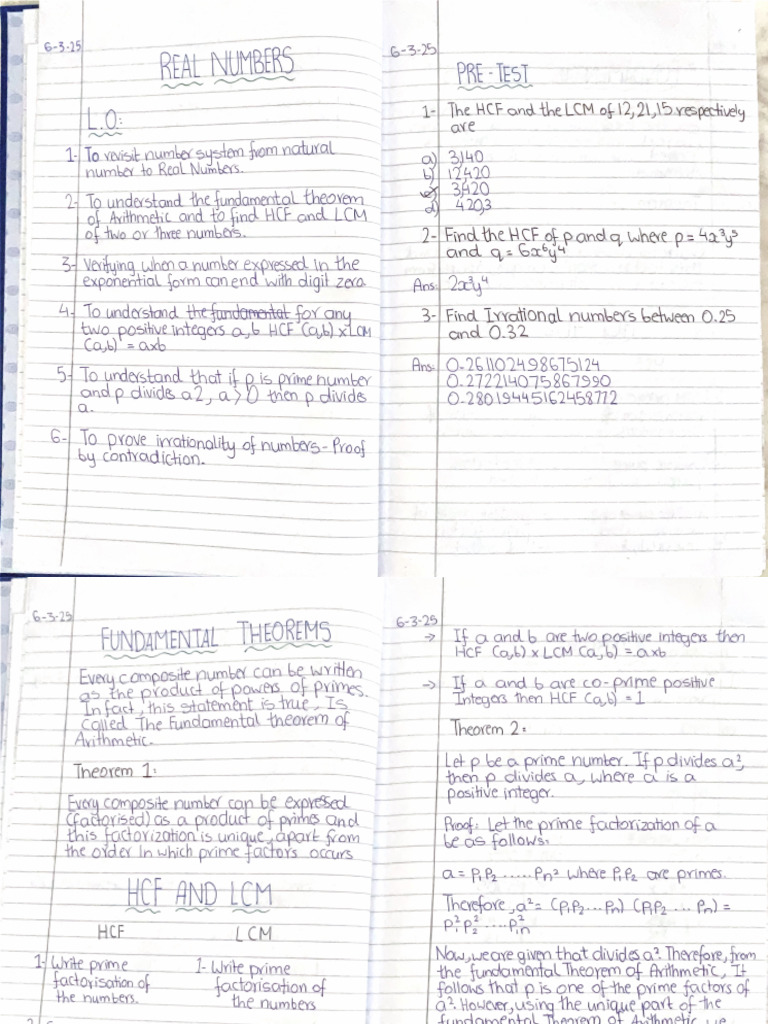 6-3-25
REAL NUMBERS
L.O:
1- To revisit number system from natural
number to Real Numbers.
2- To understand the fundamental theorem
of Arithmetic and to find HCF and LCM
of two or three numbers.
3- Verifying when a number expressed in the
exponential form can end with digit zero.
4- To understand the fundamental for any
two positive integers a,b HCF (a,b) x LCM
(a,b) = axb
5- To understand that if p is prime number
and p divides a2, a > 0 then p divides
a.
6- To prove irrationality of numbers - Proof
by contradiction.
6-3-25
PRE-TEST
1- The HCF and the LCM of 12,21,15 respectively
are
a) 3,140
b) 12,420
c) 3,420
d) 420,3
2- Find the HCF of p and q where p = 4x³y⁵
and q = 6x⁶y⁴
Ans: 2x³y⁴
3- Find Irrational numbers between 0.25
and 0.32
Ans: 0.261102498675124
0.272214075867990
0.28019445162458772
6-3-25
FUNDAMENTAL THEOREMS
Every composite number can be written
as the product of powers of primes.
In fact, this statement is true, Is
Called The Fundamental theorem of
Arithmetic.
Theorem 1:
Every composite number can be expressed
(factorised) as a product of primes and
this factorization is unique, apart from
the order in which prime factors occurs
HCF AND LCM
HCF LCM
1- Write prime 1- Write prime
factorisation of factorisation of
the numbers. the numbers
6-3-25
→ If a and b are two positive integers then
HCF (a,b) x LCM (a,b) = axb
→ If a and b are co-prime positive
Integers then HCF (a,b) = 1
Theorem 2:
Let p be a prime number. If p divides a²,
then p divides a, where a is a
positive integer.
Proof: Let the prime factorization of a
be as follows:
a = P₁P₂ ...... Pn² where P₁P₂ are primes.
Therefore, a² = (P₁P₂...Pn) (P₁P₂.... Pn) =
P₁²P₂² ..... P₁²n
Now, we are given that divides a². Therefore, from
the fundamental Theorem of Arithmetic, It
follows that p is one of the prime factors of
a². However, using the unique part of the
fundamental Theorem of Arithmetic, i.e